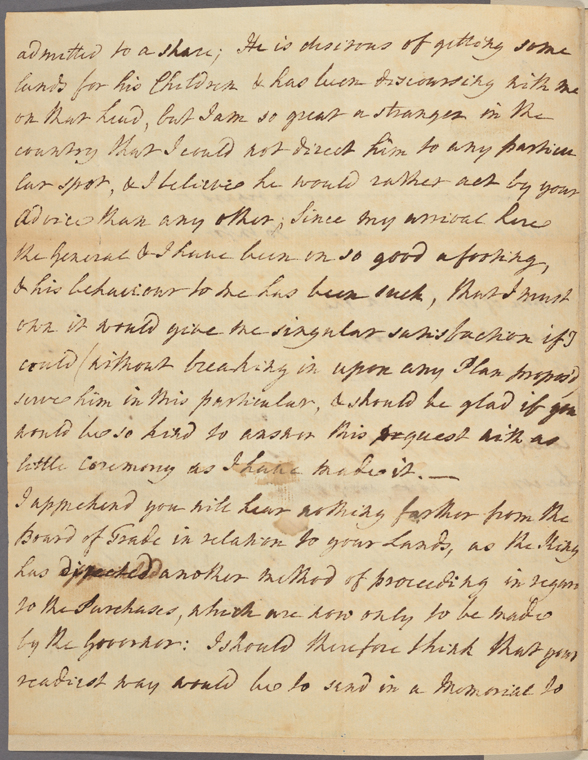 admitted to a share; He is desirous of getting some
lands for his Children & has been discoursing with me
on that head, but I am so great a stranger in the
country that I could not direct him to any particu
lar spot, & I believe he would rather act by your
advice than any other; Since my arrival here
the General & I have been on so good a footing,
& his behaviour to me has been such, that I must
own it would give me singular satisfaction if I
could (without breaking in upon any Plan propos'd
serve him in this particular, & should be glad if you
would be so kind to answer this request with as
little Ceremony as I have made it. —
I apprehend you will hear nothing farther from the
Board of Trade in relation to your Lands, as the King
has directed another method of proceeding in regard
to the Purchases, which are now only to be made
by the Governor: I should therefore think that your
readiest way would be to send in a Memorial to